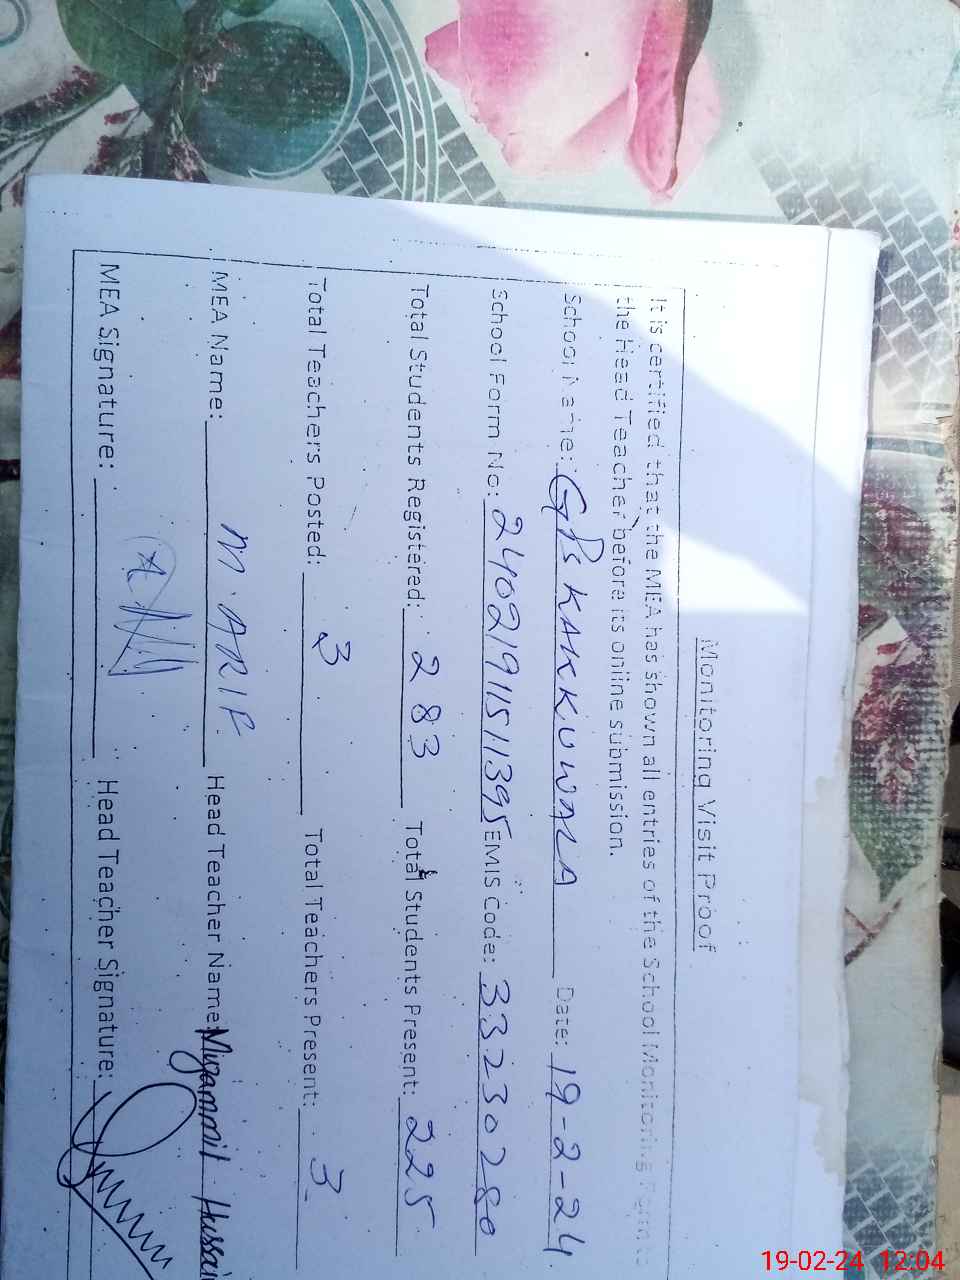 Monitoring Visit Proof
It is certified that the MEA has shown all entries of the School Monitoring Form to
the Head Teacher before its online submission.
School Name: GPS KAKKUWALA Date: 19-2-24
School Form No: 24021911511395 EMIS Code: 33230280
Total Students Registered: 283 Total Students Present: 225
Total Teachers Posted: 3 Total Teachers Present: 3
MEA Name: M. ARIF Head Teacher Name: Muzammil Hussain
MEA Signature: Head Teacher Signature:
19-02-24 12:04